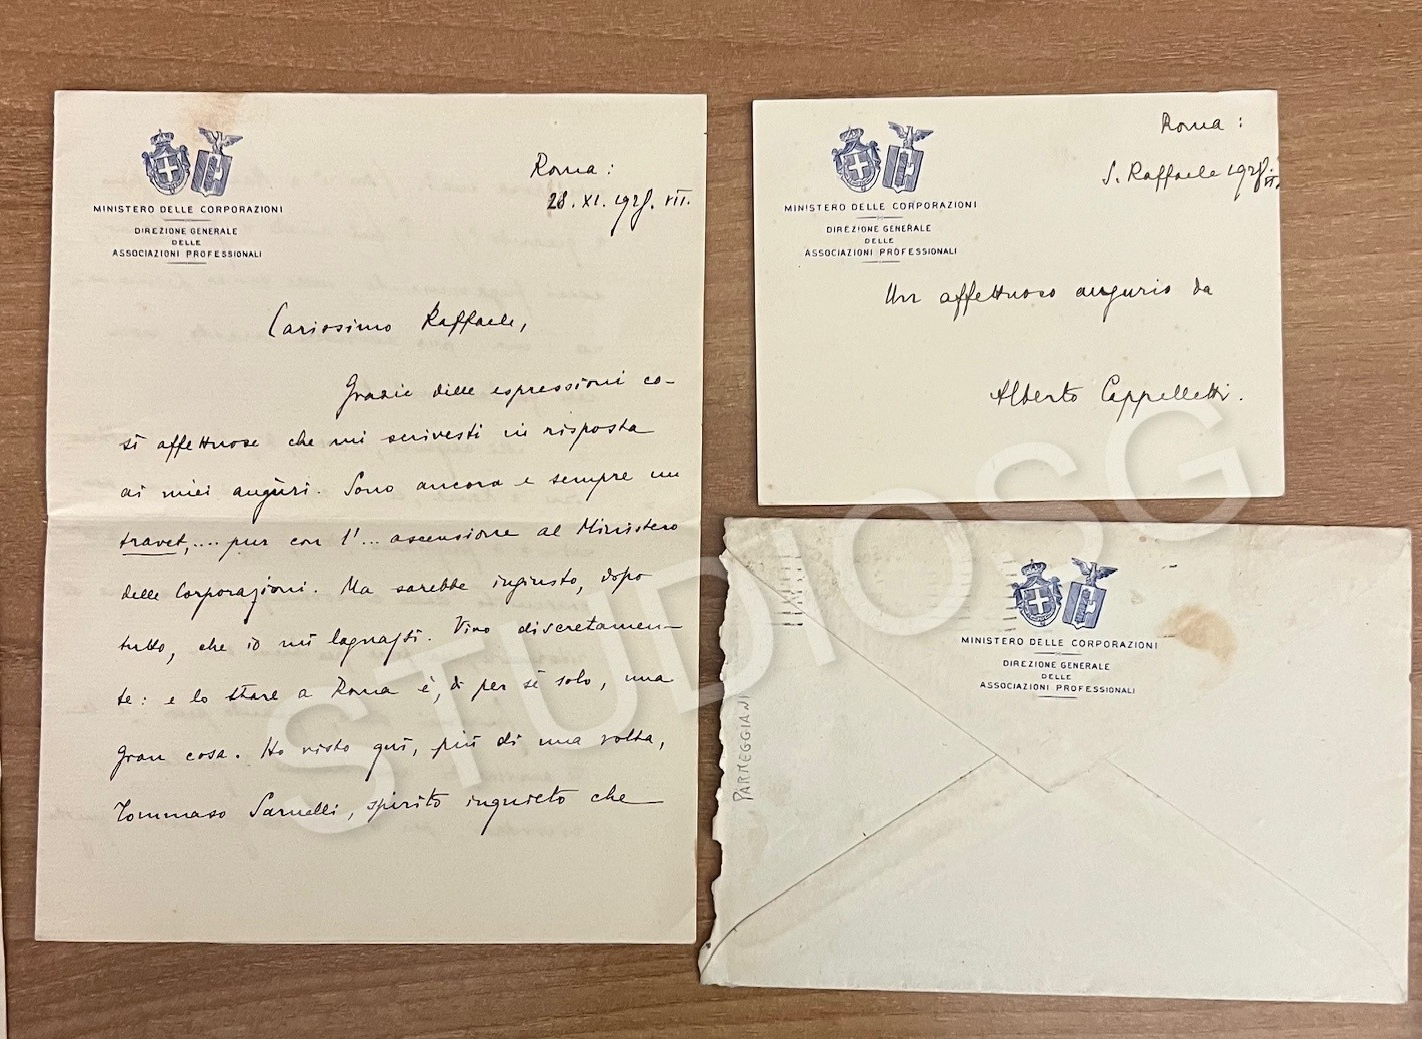 MINISTERO DELLE CORPORAZIONI
DIREZIONE GENERALE
DELLE
ASSOCIAZIONI PROFESSIONALI
Roma:
28. XI. 1928. VII.
Carissimo Raffaele,
Grazie delle espressioni co-
sì affettuose che mi scrivesti in risposta
ai miei auguri. Sono ancora e sempre un
travet,.... pur con l'... ascensione al Ministero
delle Corporazioni. Ma sarebbe ingiusto, dopo
tutto, che io mi lagnassi. Vivo discretamen-
te: e lo stare a Roma è, di per sé solo, una
gran cosa. Ho visto qui, più di una volta,
Tommaso Sarnelli, spirito inquieto che
MINISTERO DELLE CORPORAZIONI
DIREZIONE GENERALE
DELLE
ASSOCIAZIONI PROFESSIONALI
Roma:
S. Raffaele 1928. VI.
Un affettuoso augurio da
Alberto Cappelletti.
MINISTERO DELLE CORPORAZIONI
DIREZIONE GENERALE
DELLE
ASSOCIAZIONI PROFESSIONALI
PARMEGGIANI
STUDIOSG